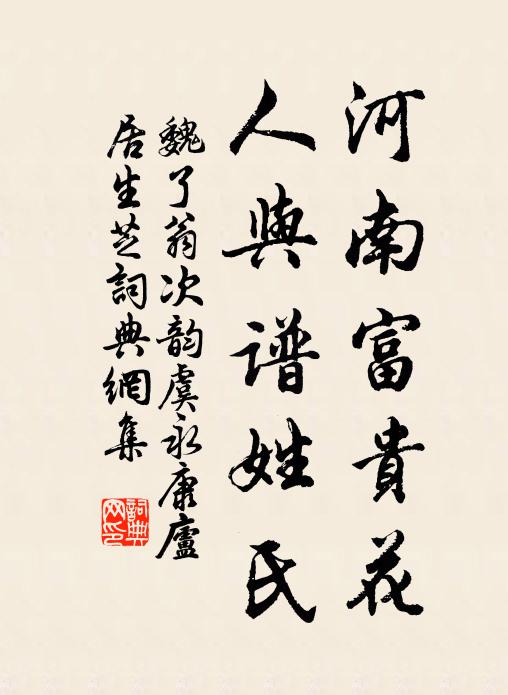 河南富貴花
人與谱姓氏
魏了翁次韵虞永康廬
居生芝詞典網集
詞典
网印